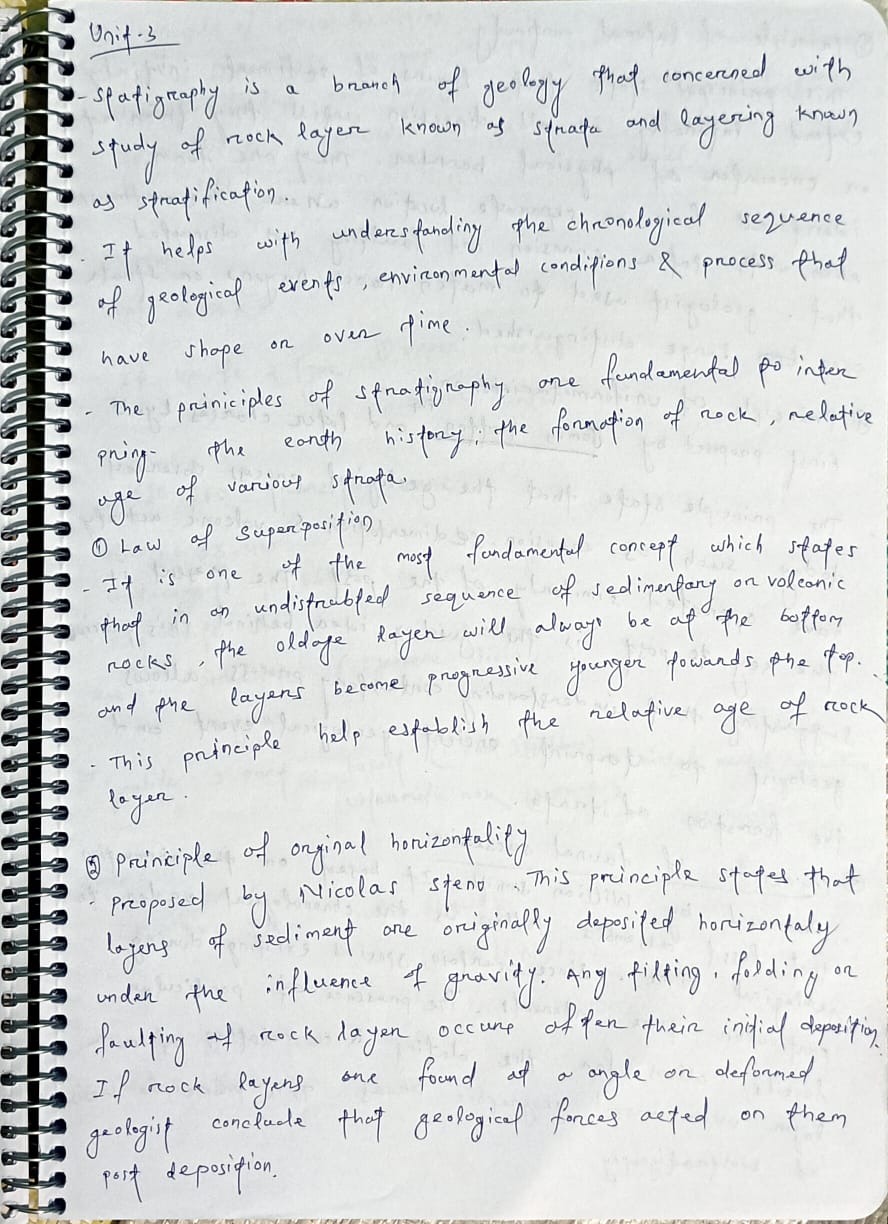 Unit-3
- Statigraphy is a branch of geology that concerned with
study of rock layer known as strata and layering known
as stratification.
- It helps with understanding the chronological sequence
of geological events, environmental conditions & process that
have shape on over time.
- The priniciples of stratigraphy are fundamental to inter
pring- the earth history, the formation of rock, relative
age of various strata.
① Law of Superposition
- It is one of the most fundamental concept which states
that in an undistrubted sequence of sedimentary or volcanic
rocks, the oldage layer will always be at the bottom
and the layers become progressive younger towards the top.
- This principle help establish the relative age of rock
layer.
② Principle of orginal horizontality
- Proposed by Nicolas steno. This principle states that
layers of sediment are originally deposited horizontaly
under the influence of gravity. Any tilting, folding or
faulting of rock layer occurs after their initial deposition.
If rock layers are found at a angle or deformed
geologist conclude that geological forces acted on them
post deposition.